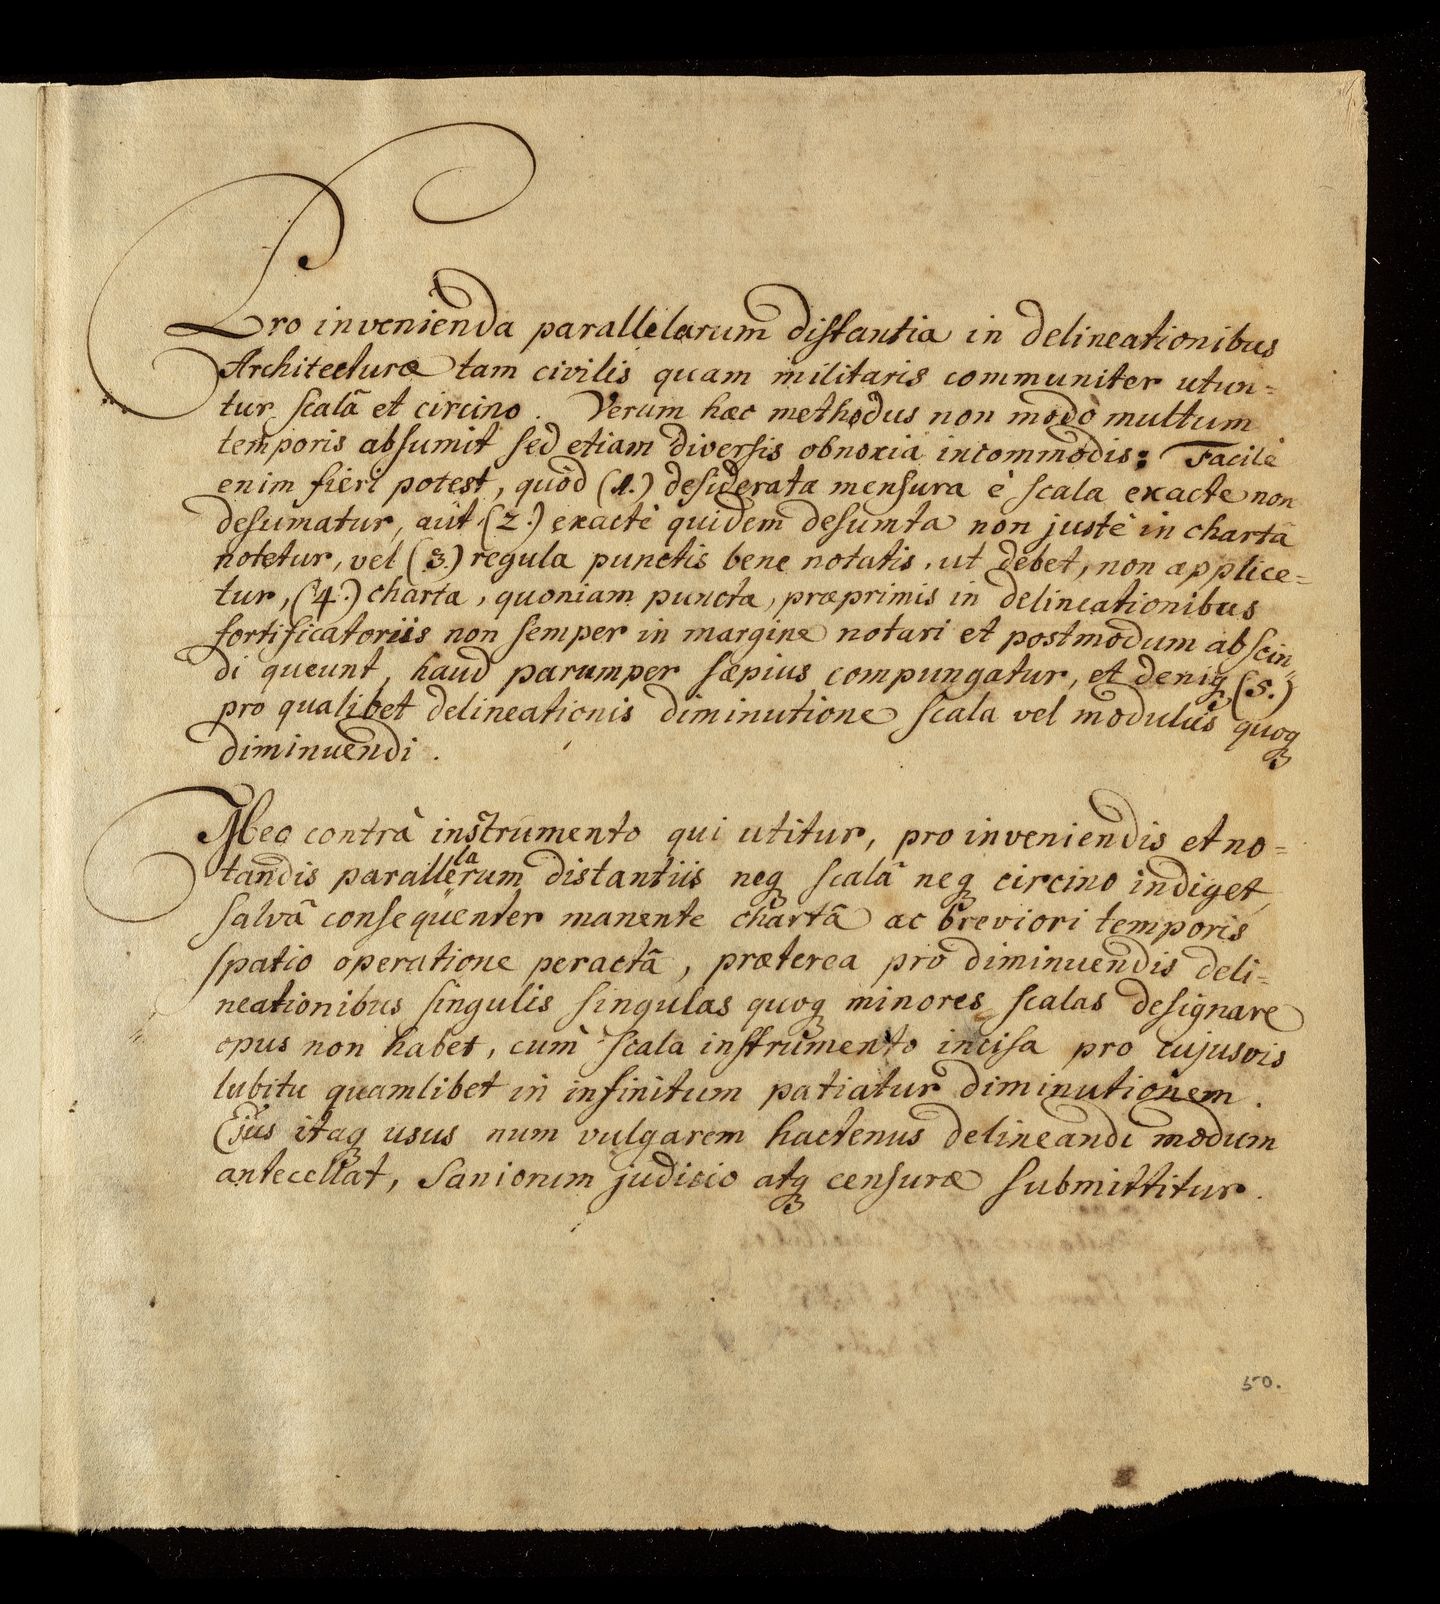 Pro invenienda parallelarum distantia in delineationibus
Architecturæ tam civilis quam militaris communiter utun=
tur scalâ et circino. Verum hæc methodus non modò multum
temporis absumit sed etiam diversis obnoxia incommodis: Facilè
enim fieri potest, quòd (1.) desiderata mensura è scala exacte non
desumatur, aut (2.) exactè quidem desumta non justè in chartâ
notetur, vel (3.) regula punctis bene notatis, ut debet, non applice=
tur, (4.) charta, quoniam puncta, præprimis in delineationibus
fortificatoriis non semper in margine notari et postmodum abscin=
di queunt, haud parumper sæpius compungatur, et deniqꝫ (5.)
pro qualibet delineationis diminutione scala vel modulus quoqꝫ
diminuendi.
Meo contrà instrumento qui utitur, pro inveniendis et no=
tandis parallelarum distantiis neqꝫ scalâ neqꝫ circino indiget,
salvâ consequenter manente chartâ ac breviori temporis
spatio operatione peractâ, præterea pro diminuendis deli=
neationibus singulis singulas quoqꝫ minores scalas designare
opus non habet, cum scala instrumento incisa pro cujusvis
lubitu quamlibet in infinitum patiatur diminutionem.
Ejus itaqꝫ usus num vulgarem hactenus delineandi modum
antecellat, Saniorum judicio atqꝫ censuræ submittitur.
50.